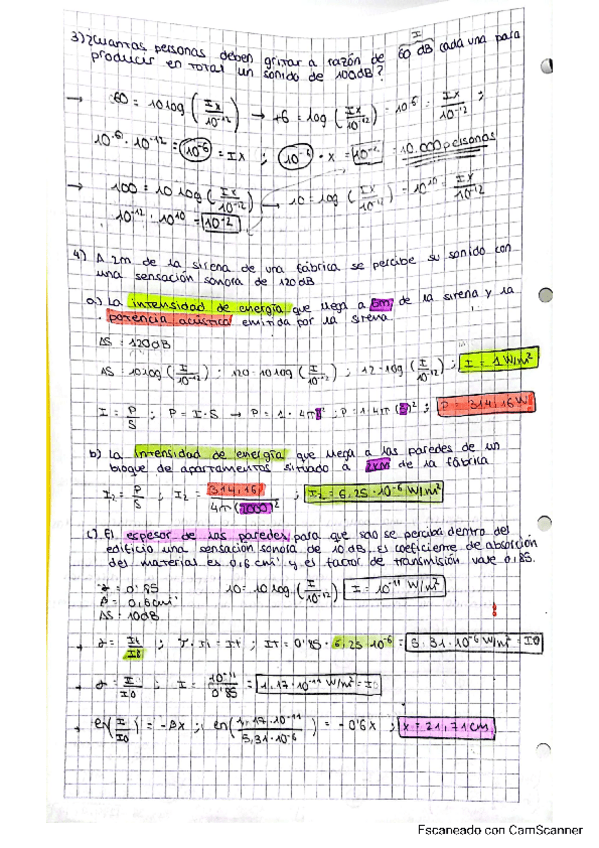 3) ¿Cuantas personas deben gritar a razón de 60 dB cada una para
producir en total un sonido de 100 dB?
I
→ 60 = 10 log (Ix/10^-12) → +6 = log (Ix/10^-12) = 10^6 = Ix/10^-12 ;
10^-6 · 10^-12 = 10^-6 = Ix ; 10^-6 · x = 10^-2 = 10.000 personas
→ 100 = 10 log (Ix/10^-12) → 10 = log (Ix/10^-12) = 10^10 = Ix/10^-12
10^-12 · 10^10 = 10^-2
4) A 2m de la sirena de una fábrica se percibe su sonido con
una sensación sonora de 120 dB
a) La intensidad de energía que llega a 5m de la sirena y la
potencia acústica emitida por la sirena
ΔS = 120 dB
ΔS = 10 log (I/10^-12) ; 120 = 10 log (I/10^-12) ; 12 = log (I/10^-12) ; I = 1 W/m²
I = P/S ; P = I · S → P = 1 · 4π 5² ; P = 1 · 4π (5)² ; P = 314,16 W
b) La intensidad de energía que llega a las paredes de un
bloque de apartamentos situado a 2km de la fábrica
I2 = P/S ; I2 = 314,16/4π (2000)² ; I2 = 6,25 · 10^-6 W/m²
c) El espesor de las paredes para que solo se perciba dentro del
edificio una sensación sonora de 10 dB. El coeficiente de absorción
del material es 0,6 cm^-1 y el factor de transmisión vale 0,85.
γ = 0'85
β = 0,6 cm^-1
ΔS = 10 dB
10 = 10 log (I/10^-12) I = 10^-11 W/m²
→ γ = It/Ii ; γ · Ii = It ; IT = 0'85 · 6,25 · 10^-6 = 5,31 · 10^-6 W/m² = I0
→ γ = I/I0 ; I = 10^-11/0'85 = 1,17 · 10^-11 W/m² = I
→ en (I/I0) = -βx ; en (1,17 · 10^-11/5,31 · 10^-6) = -0'6x ; x = 21,71 cm
Escaneado con CamScanner